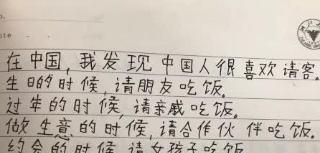 在中国,我发现中国人很喜欢请客。
生日的时候,请朋友吃饭。
过年的时候,请亲戚吃饭。
做生意的时候,请合作伙伴吃饭。
约会的时候,请女孩子吃饭